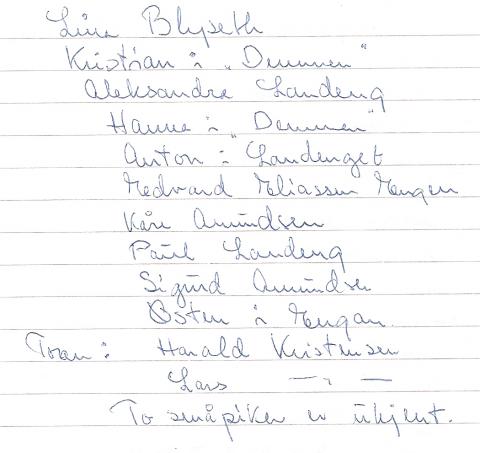 Lina Blyseth
Kristian i „Demmen"
Aleksandra Landeng
Hanna i „Demmen"
Anton i Landenget
Edvard Eliassen Engen
Kåre Amundsen
Paul Landeng
Sigurd Amundsen
Østen i Engan.
Foran: Harald Kristensen
Lars — " —
To småpiker er ukjent.